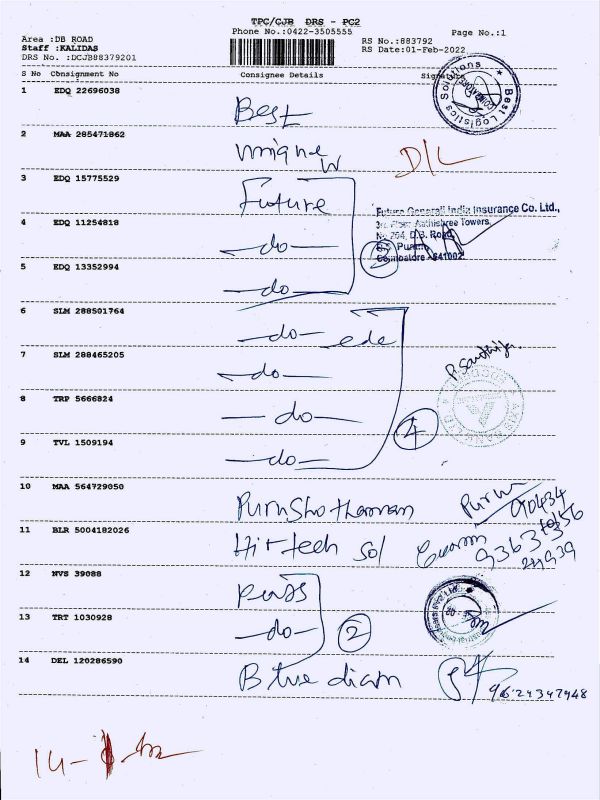 TPC/CJB DRS - PC2
Phone No.:0422-3505555
Area :DB ROAD
Staff :KALIDAS
DRS No. :DCJB88379201
RS No.:883792
RS Date:01-Feb-2022
Page No.:1
S No Consignment No Consignee Details Signature
1 EDQ 22696038 Best
Best Logistics Solutions
2 MAA 285471862 unique D/L
3 EDQ 15775529 Future
Future Generali India Insurance Co. Ltd.,
3rd Floor, Aathishree Towers,
No 204, D.B. Road,
R.S. Puram,
Coimbatore - 641002.
4 EDQ 11254818 -do-
3
5 EDQ 13352994 -do-
6 SLM 288501764 -do-
7 SLM 288465205 -do-
8 TRP 5666824 -do-
4
9 TVL 1509194 -do-
10 MAA 564729050 Purushothaman
11 BLR 5004182026 Hi-tech Sol
12 NVS 39088
13 TRT 1030928 -do-
2
14 DEL 120286590 Blue diam
9624347948